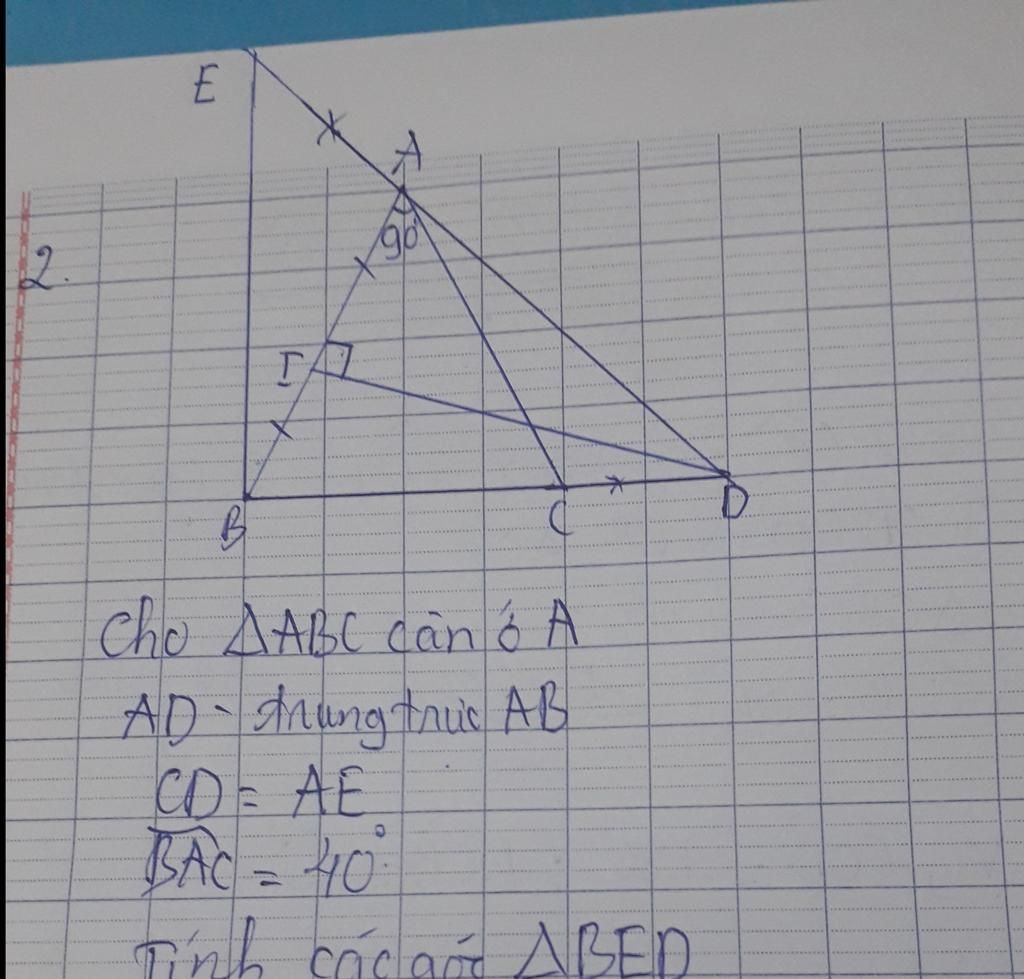 E
A
90
2.
I
B
C
D
Cho ΔABC cân ở A
AD - trung trực AB
CD = AE
BAC = 40°
Tính các góc ΔBED